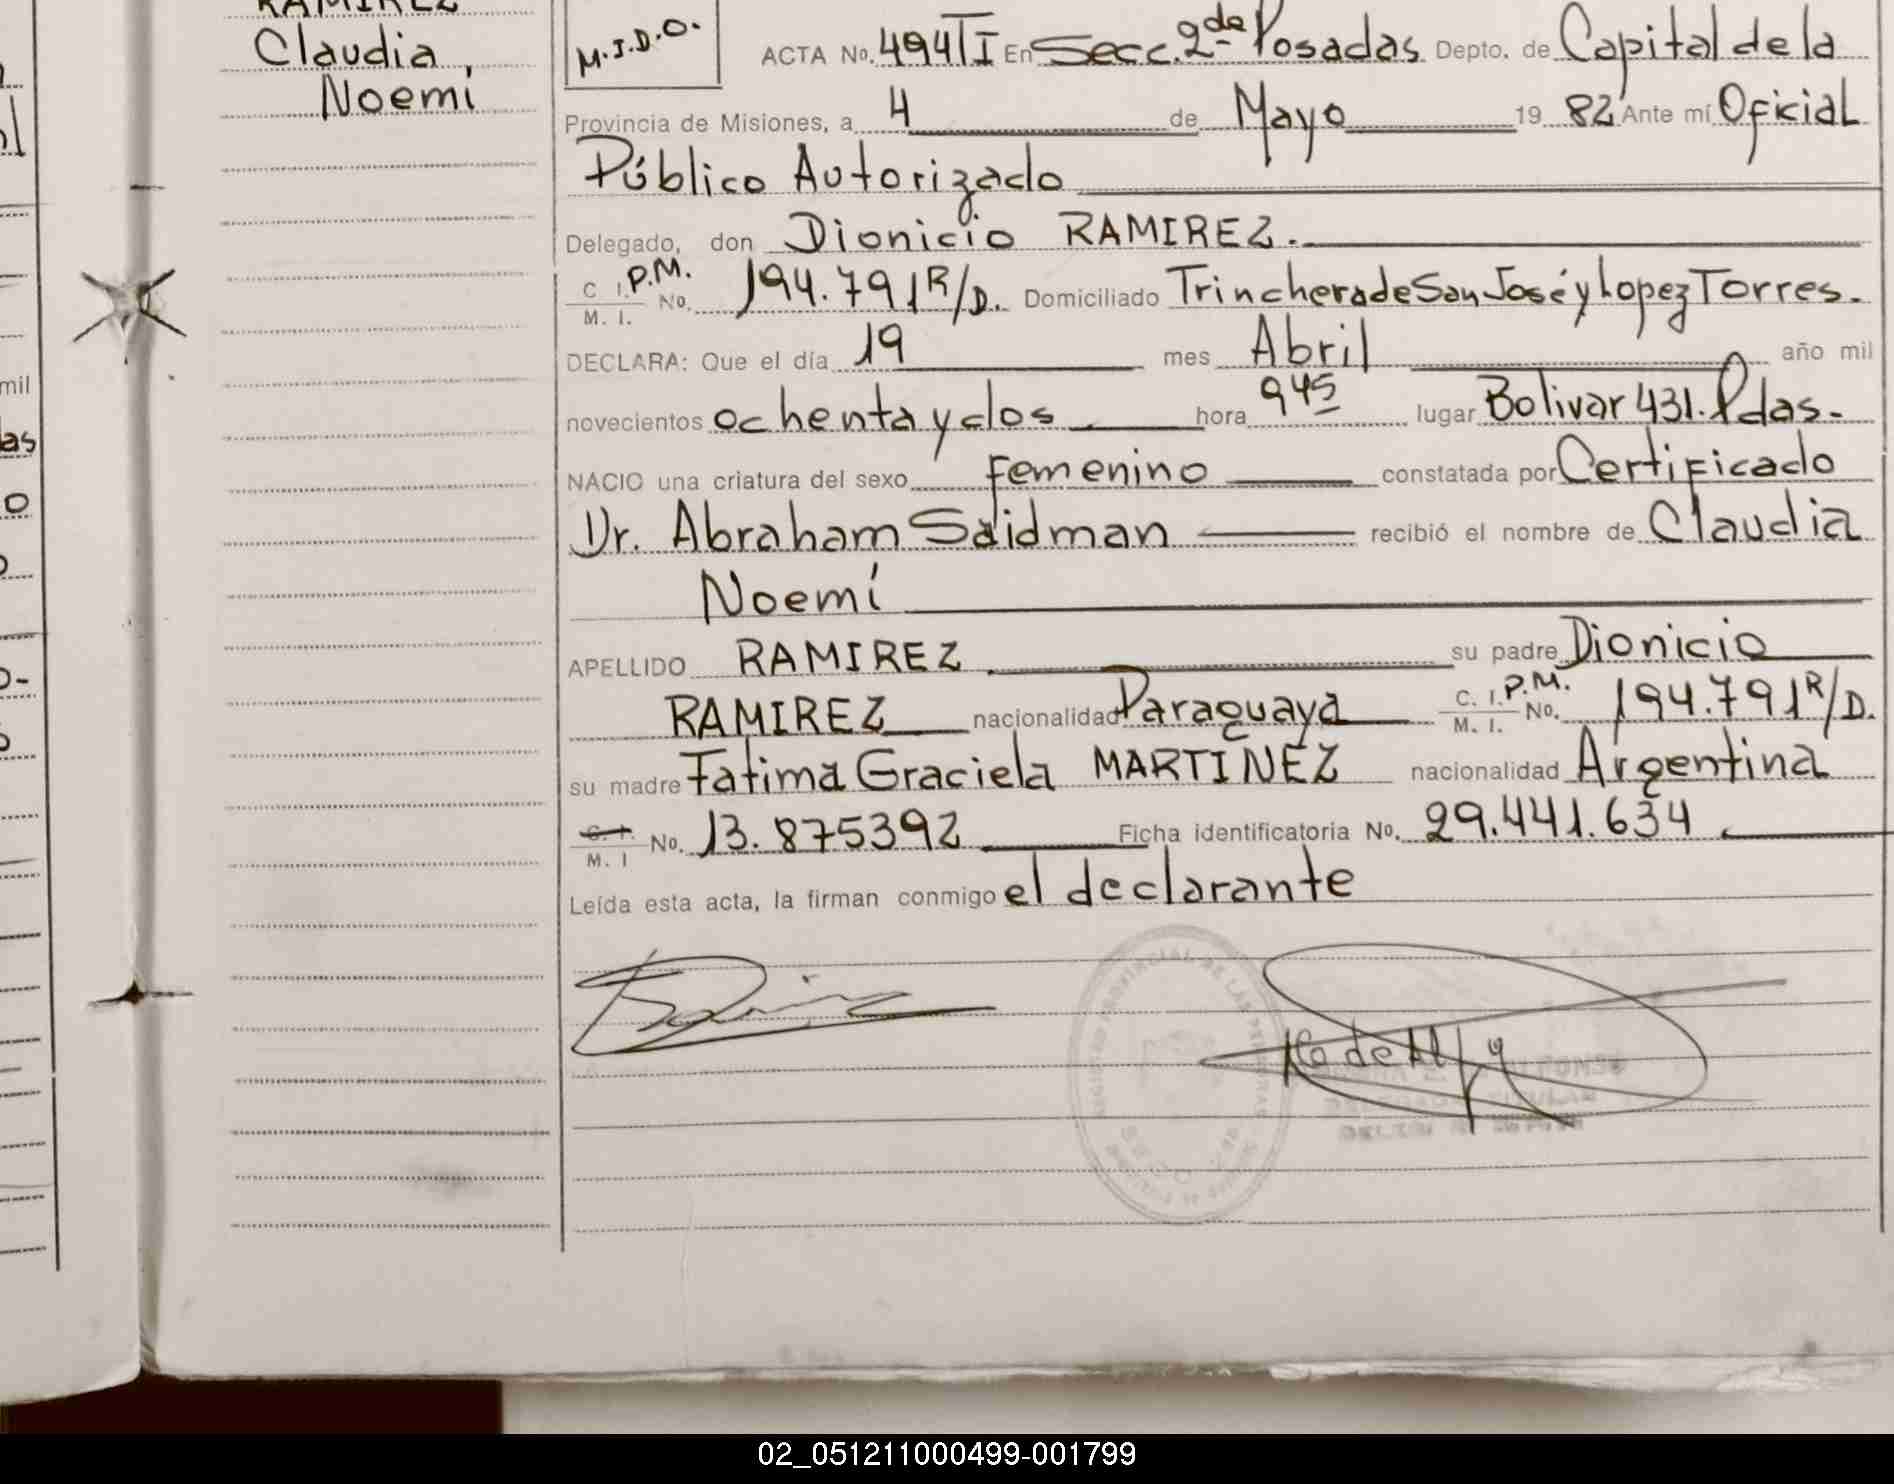 RAMIREZ
Claudia,
Noemí
M.I.D.O.
ACTA No. 494 TI En Secc. 2da Posadas Depto. de Capital de la
Provincia de Misiones, a 4 de Mayo 19 82 Ante mí Oficial
Público Autorizado
Delegado, don Dionicio RAMIREZ.
C I. P.M. No. 194.791 R/D. Domiciliado Trinchera de San José y Lopez Torres.
M. I.
DECLARA: Que el día 19 mes Abril año mil
novecientos ochenta y dos hora 9 45 lugar Bolivar 431. Pdas.
NACIO una criatura del sexo femenino constatada por Certificado
Dr. Abraham Saidman recibió el nombre de Claudia
Noemí
APELLIDO RAMIREZ su padre Dionicio
RAMIREZ nacionalidad Paraguaya C. I. P.M. No. 194.791 R/D.
M. I.
su madre Fatima Graciela MARTINEZ nacionalidad Argentina
C. I. No. 13.875392 Ficha identificatoria No. 29.441.634
M. I
Leída esta acta, la firman conmigo el declarante
mil
as
02_051211000499-001799